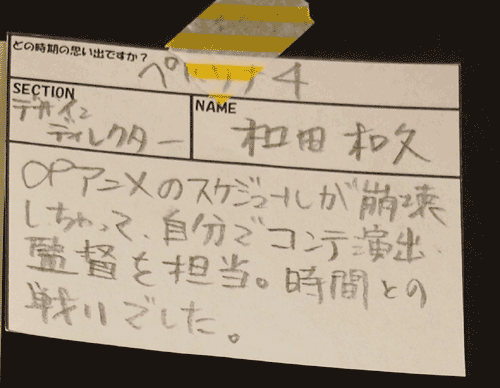 どの時期の思い出ですか？
ペルソナ4
SECTION
デザイン
ディレクター
NAME
和田 和久
OPアニメのスケジュールが崩壊
しちゃって、自分でコンテ演出
監督を担当。時間との
戦いでした。